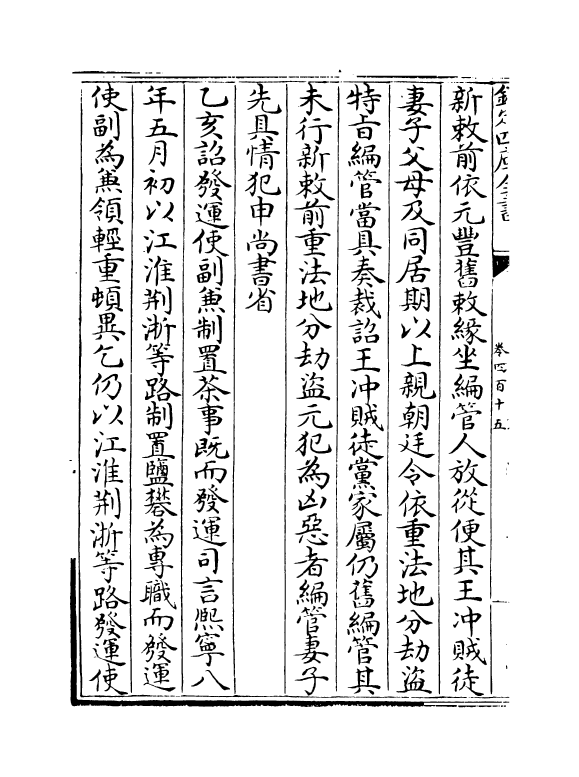 欽定四庫全書
卷四百十五
新敕前依元豐舊敕緣坐編管人放從便其王冲賊徒
妻子父母及同居期以上親朝廷令依重法地分劫盜
特旨編管當具奏裁詔王冲賊徒黨家屬仍舊編管其
未行新敕前重法地分劫盜元犯為凶惡者編管妻子
先具情犯申尚書省
乙亥詔發運使副兼制置茶事既而發運司言熈寧八
年五月初以江淮荆浙等路制置鹽礬為專職而發運
使副為兼領輕重頓異乞仍以江淮荆浙等路發運使